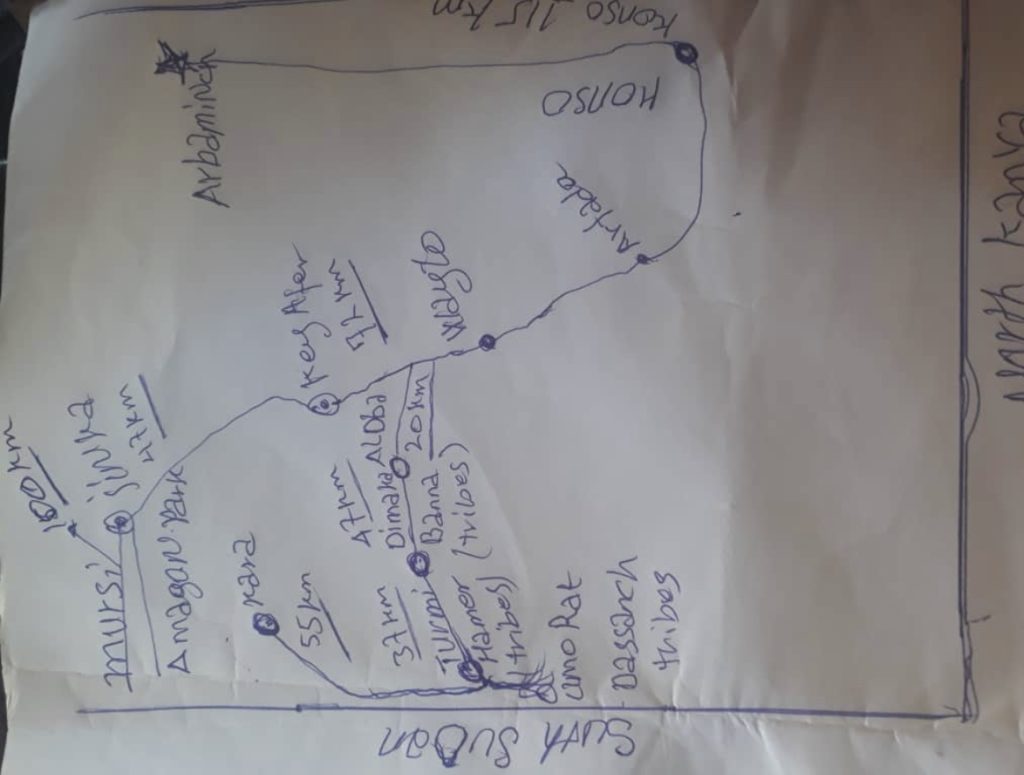 100 km
mursi
jinka
47 km
Amagan. Park
Kara
55 km
Key Afer
42 km
Arbaminch
Wayto
ALDBa
20 km
47 km
Dimaka
Banna
(tribes)
37 km
Turmi
Hamer
(tribes)
omoRat
Dassanch
tribes
Arfada
Konso 115 km
Konso
Suth Sudan
North Kanya